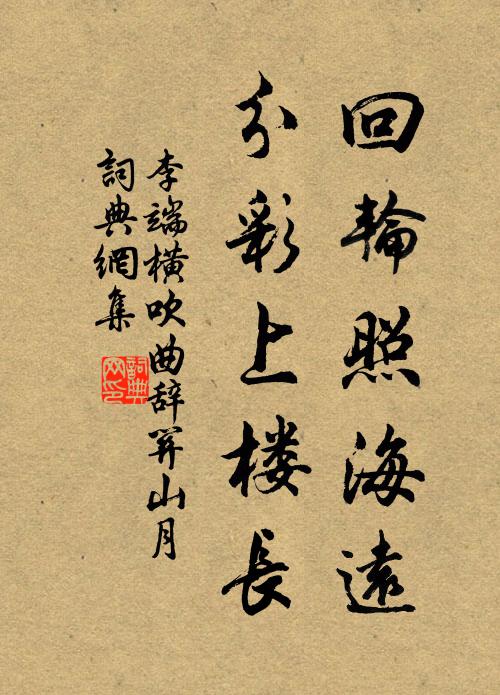 回輪照海遠
分彩上楼長
李端橫吹曲辞關山月
詞典網集
詞典网印